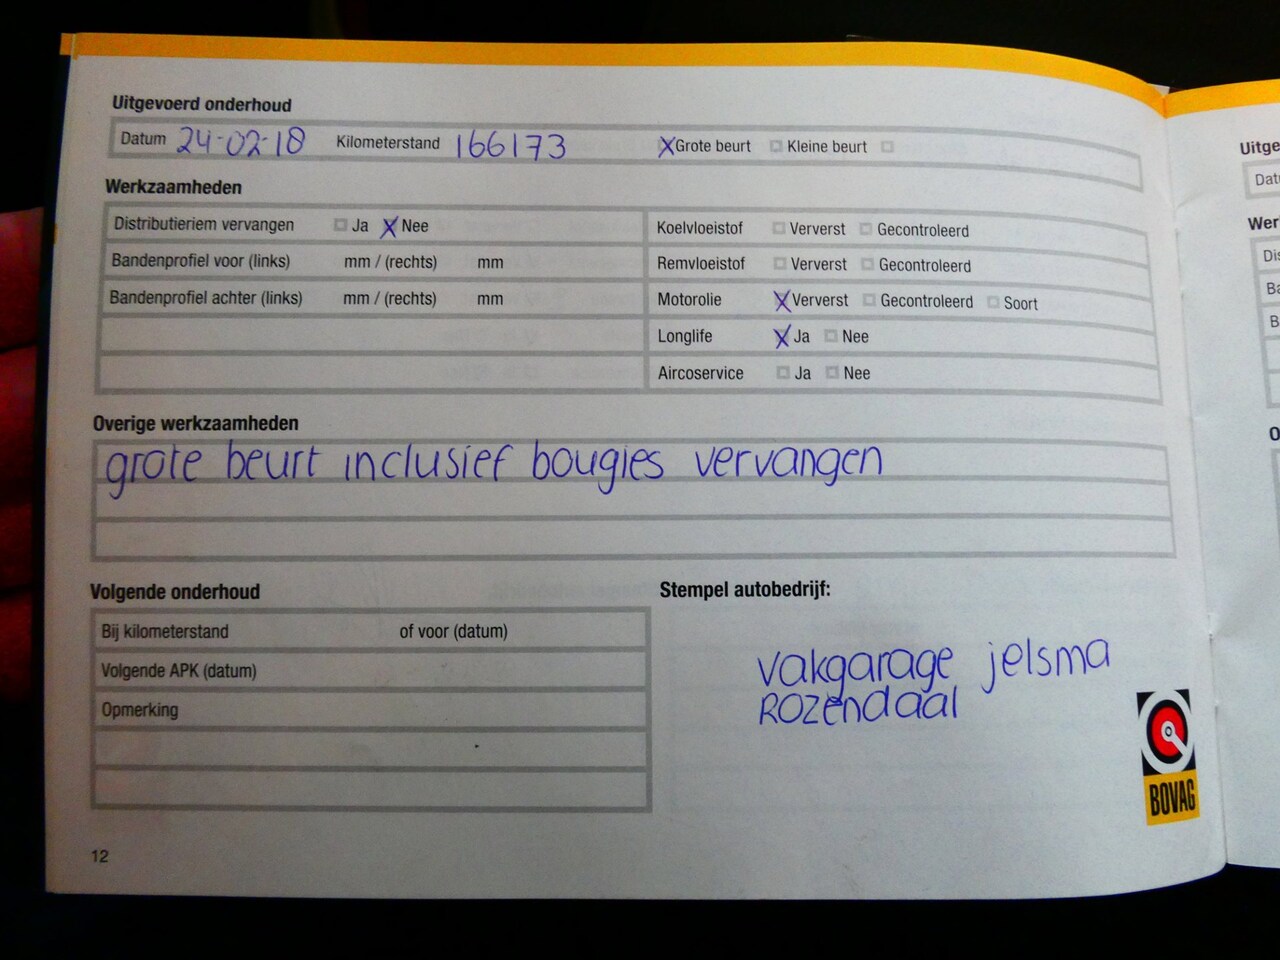 Uitgevoerd onderhoud
Datum 24-02-18 Kilometerstand 166173 X Grote beurt Kleine beurt
Werkzaamheden
Distributieriem vervangen Ja X Nee
Bandenprofiel voor (links) mm / (rechts) mm
Bandenprofiel achter (links) mm / (rechts) mm
Koelvloeistof Ververst Gecontroleerd
Remvloeistof Ververst Gecontroleerd
Motorolie X Ververst Gecontroleerd Soort
Longlife X Ja Nee
Aircoservice Ja Nee
Overige werkzaamheden
grote beurt inclusief bougies vervangen
Volgende onderhoud
Bij kilometerstand of voor (datum)
Volgende APK (datum)
Opmerking
Stempel autobedrijf:
vakgarage jelsma
Rozendaal
BOVAG
12